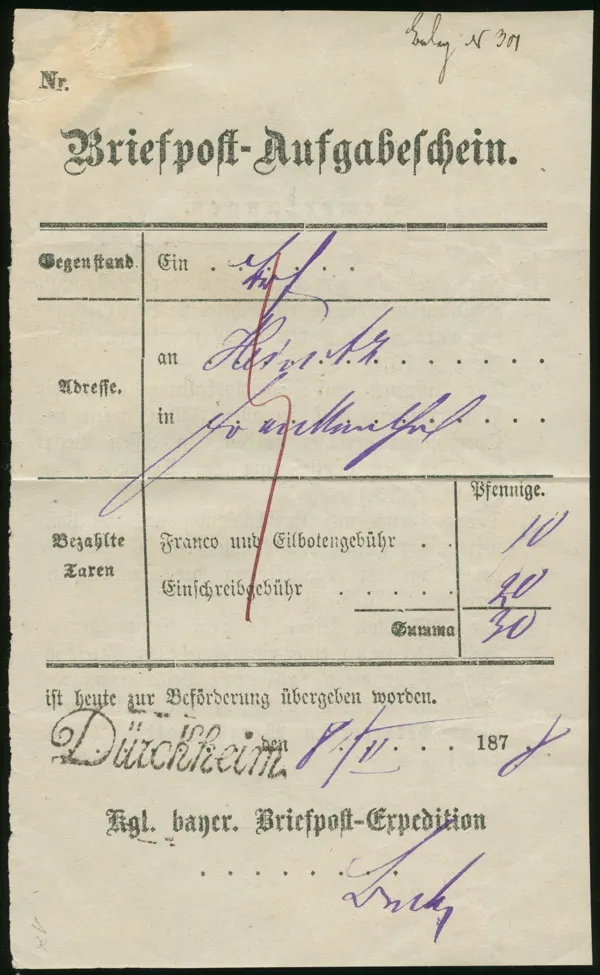 Beleg N 301
Nr.
Briefpost-Aufgabeschein.
Gegenstand
Ein . Brief . .
Adresse.
an
in Frankenthal . . .
Pfennige.
Bezahlte Taxen
Franco und Eilbotengebühr . . 10
Einschreibgebühr . . . . . 20
Summa 30
ist heute zur Beförderung übergeben worden.
Dürckheim den 8/II . . . 1878
Kgl. bayer. Briefpost-Expedition